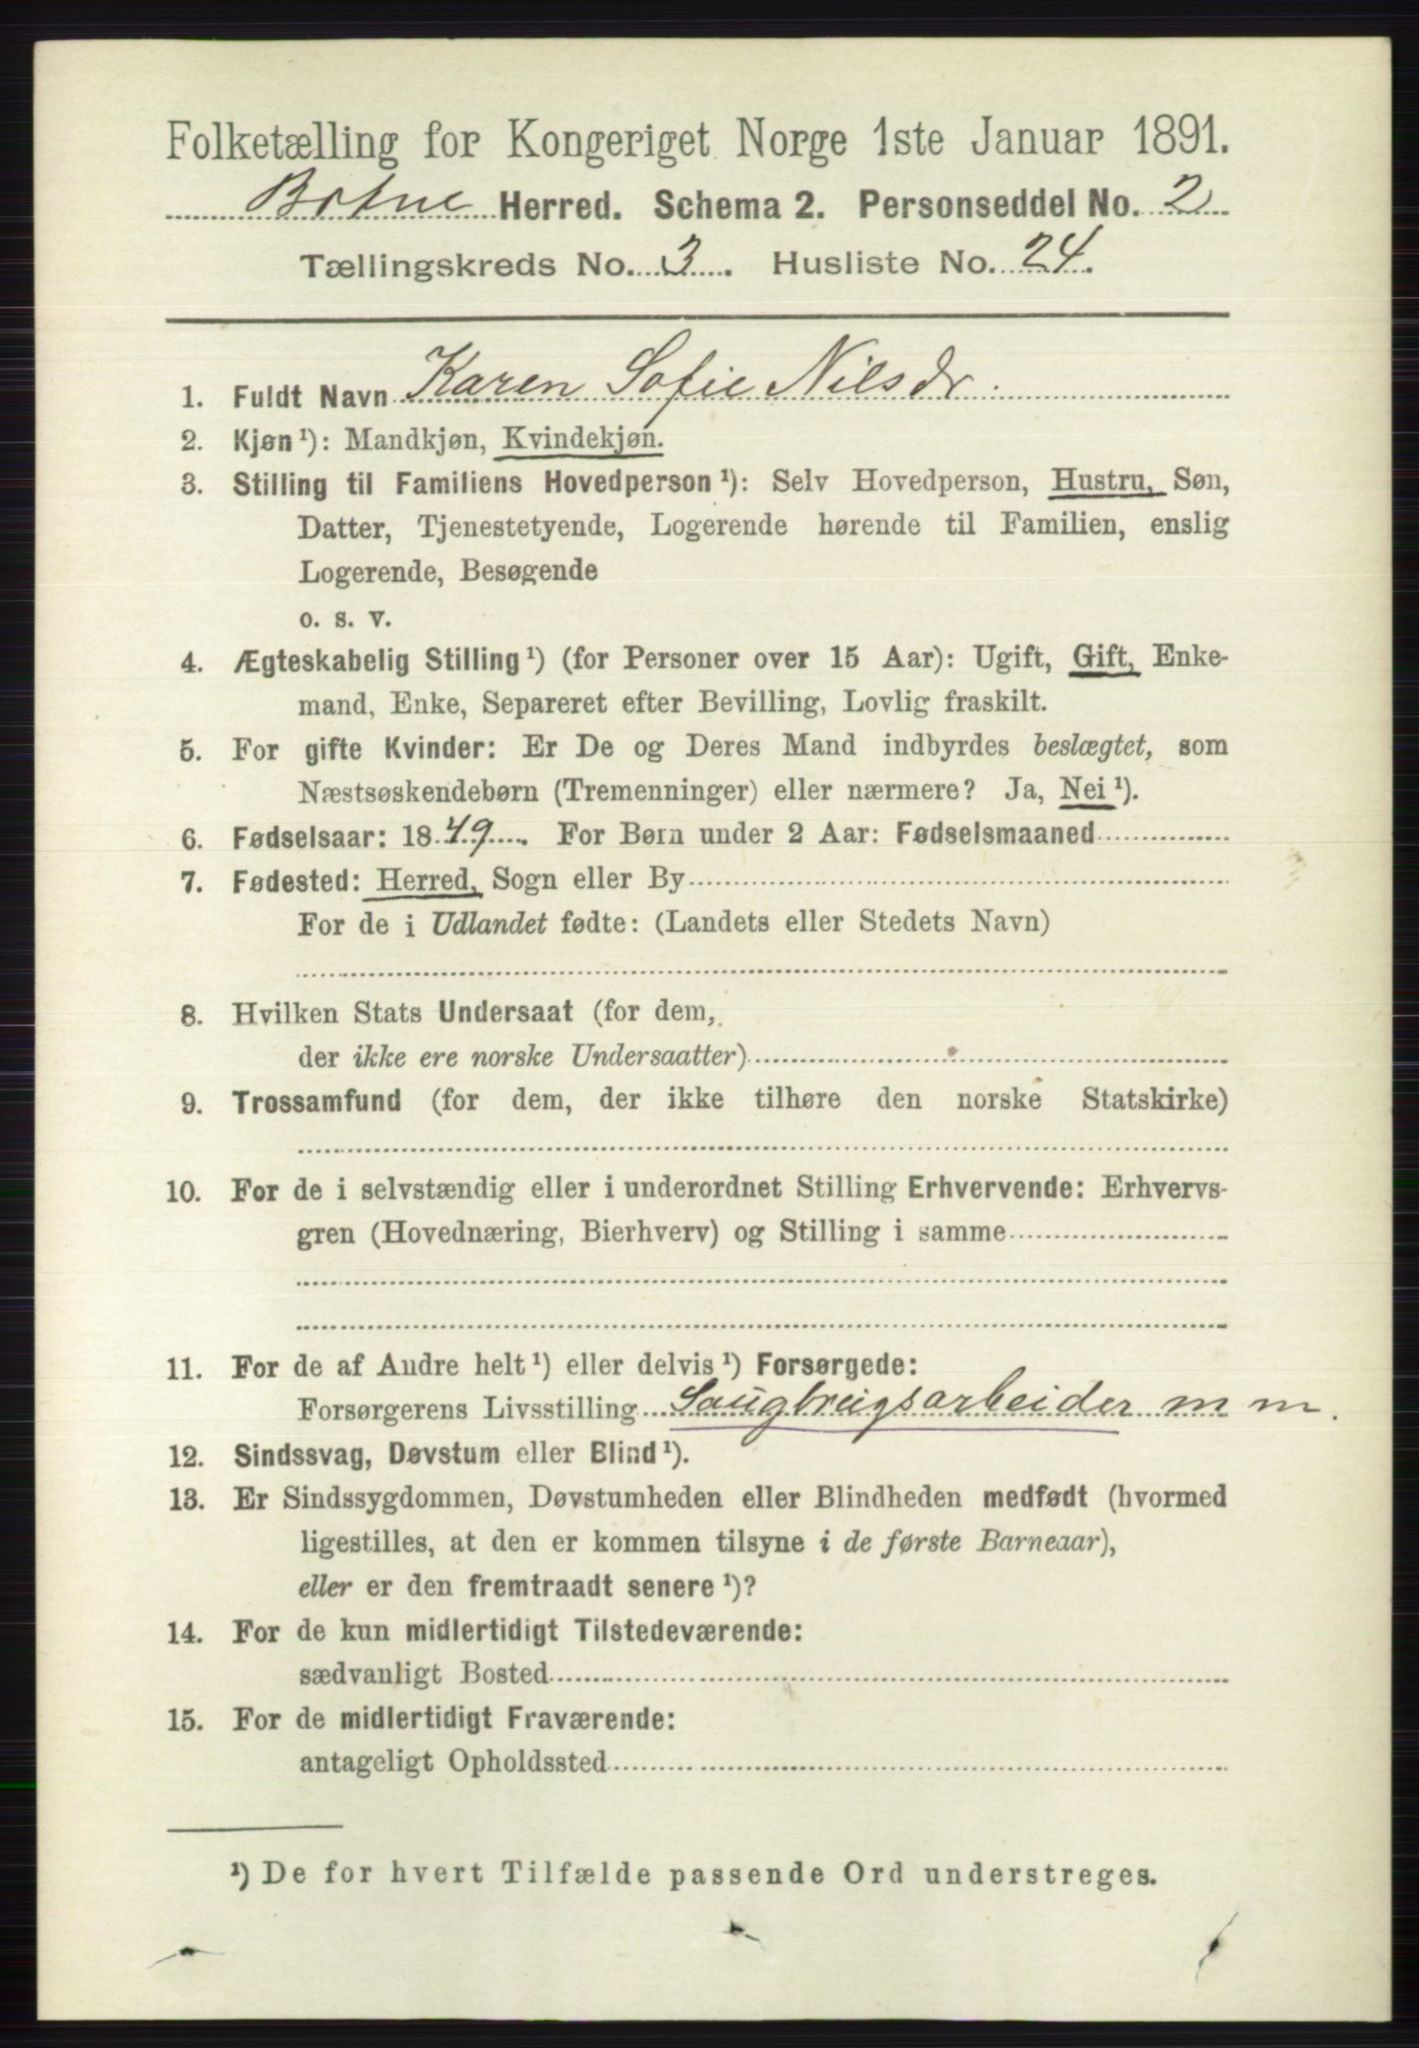 Folketælling for Kongeriget Norge 1ste Januar 1891.
Botne Herred. Schema 2. Personseddel No. 2
Tællingskreds No. 3. Husliste No. 24.
1. Fuldt Navn Karen Sofie Nilsdr.
2. Kjøn ¹): Mandkjøn, Kvindekjøn.
3. Stilling til Familiens Hovedperson ¹): Selv Hovedperson, Hustru, Søn,
Datter, Tjenestetyende, Logerende hørende til Familien, enslig
Logerende, Besøgende
o. s. v.
4. Ægteskabelig Stilling ¹) (for Personer over 15 Aar): Ugift, Gift, Enke-
mand, Enke, Separeret efter Bevilling, Lovlig fraskilt.
5. For gifte Kvinder: Er De og Deres Mand indbyrdes beslægtet, som
Næstsøskendebørn (Tremenninger) eller nærmere? Ja, Nei ¹).
6. Fødselsaar: 1849. For Børn under 2 Aar: Fødselsmaaned
7. Fødested: Herred, Sogn eller By
For de i Udlandet fødte: (Landets eller Stedets Navn)
8. Hvilken Stats Undersaat (for dem,
der ikke ere norske Undersaatter)
9. Trossamfund (for dem, der ikke tilhøre den norske Statskirke)
10. For de i selvstændig eller i underordnet Stilling Erhvervende: Erhvervs-
gren (Hovednæring, Bierhverv) og Stilling i samme
11. For de af Andre helt ¹) eller delvis ¹) Forsørgede:
Forsørgerens Livsstilling Saugbrugsarbeider m m.
12. Sindssvag, Døvstum eller Blind ¹).
13. Er Sindssygdommen, Døvstumheden eller Blindheden medfødt (hvormed
ligestilles, at den er kommen tilsyne i de første Barneaar),
eller er den fremtraadt senere ¹)?
14. For de kun midlertidigt Tilstedeværende:
sædvanligt Bosted
15. For de midlertidigt Fraværende:
antageligt Opholdssted
¹) De for hvert Tilfælde passende Ord understreges.